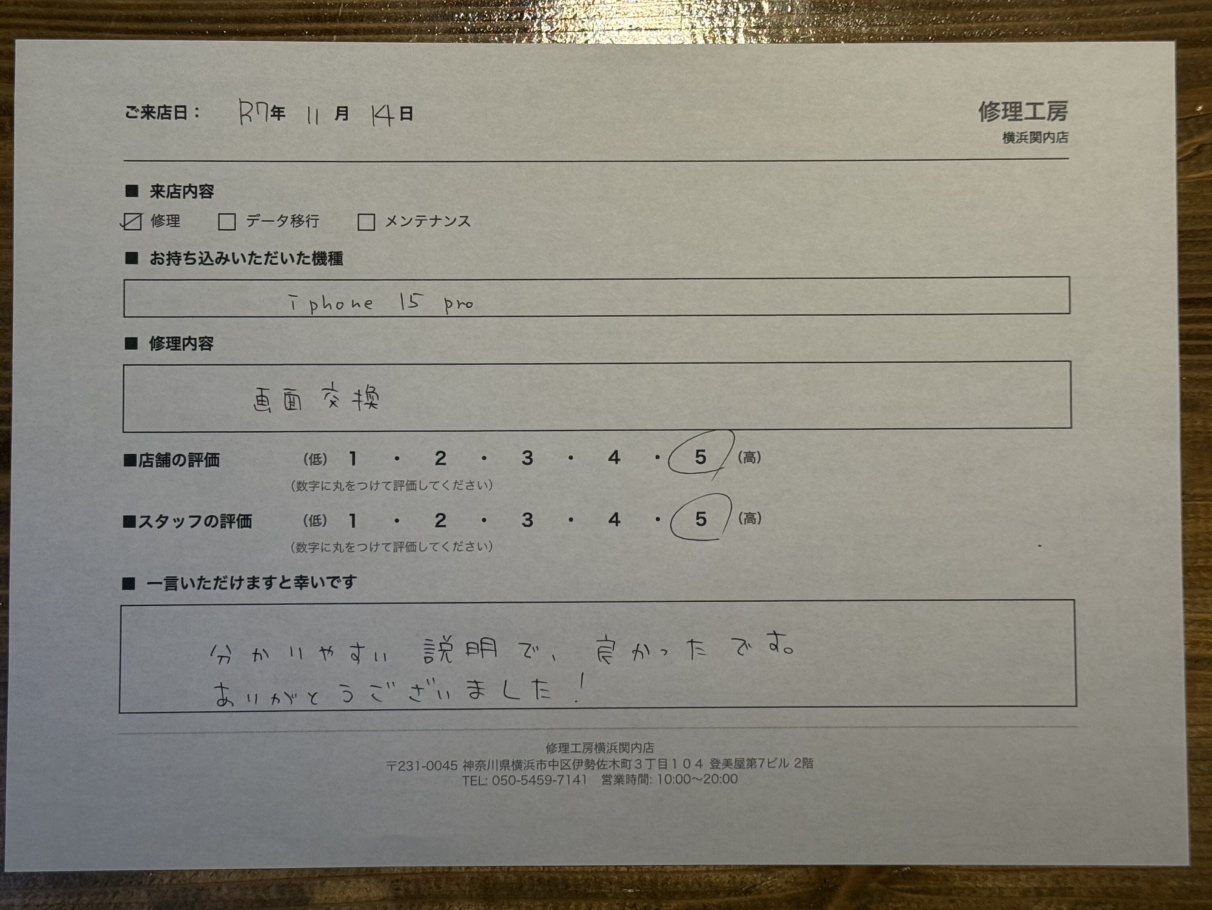 ご来店日： R7年 11月 14日
修理工房
横浜関内店
■ 来店内容
☑ 修理 □ データ移行 □ メンテナンス
■ お持ち込みいただいた機種
iphone 15 pro
■ 修理内容
画面交換
■店舗の評価 （低） 1 ・ 2 ・ 3 ・ 4 ・ 5 （高）
（数字に丸をつけて評価してください）
■スタッフの評価 （低） 1 ・ 2 ・ 3 ・ 4 ・ 5 （高）
（数字に丸をつけて評価してください）
■ 一言いただけますと幸いです
分かりやすい説明で、良かったです。
ありがとうございました！
修理工房横浜関内店
〒231-0045 神奈川県横浜市中区伊勢佐木町３丁目１０４ 登美屋第7ビル 2階
TEL: 050-5459-7141 営業時間: 10:00〜20:00